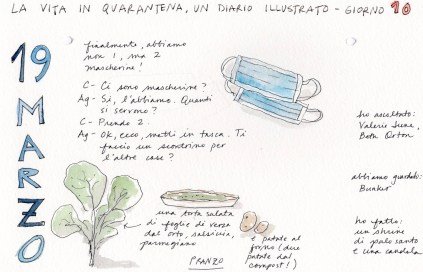 LA VITA IN QUARANTENA, UN DIARIO ILLUSTRATO - GIORNO 10
19
MARZO
finalmente, abbiamo
non 1, ma 2
mascherine!
C- Ci sono mascherine?
Ag- Sì, l'abbiamo. Quanti
si servono?
C- Prendo 2.
Ag- Ok, ecco, metti in tasca. Ti
faccio un scontrino per
l'altre cose?
ho ascoltato:
Valerie June,
Beth Orton
abbiamo guardato:
Bunker
ho fatto:
un
di palo santo
e una candela
una torta salata
di foglie di verza
dal orto, salsiccia,
parmegiano
e patate al
forno (due
patate dal
compost!)
PRANZO